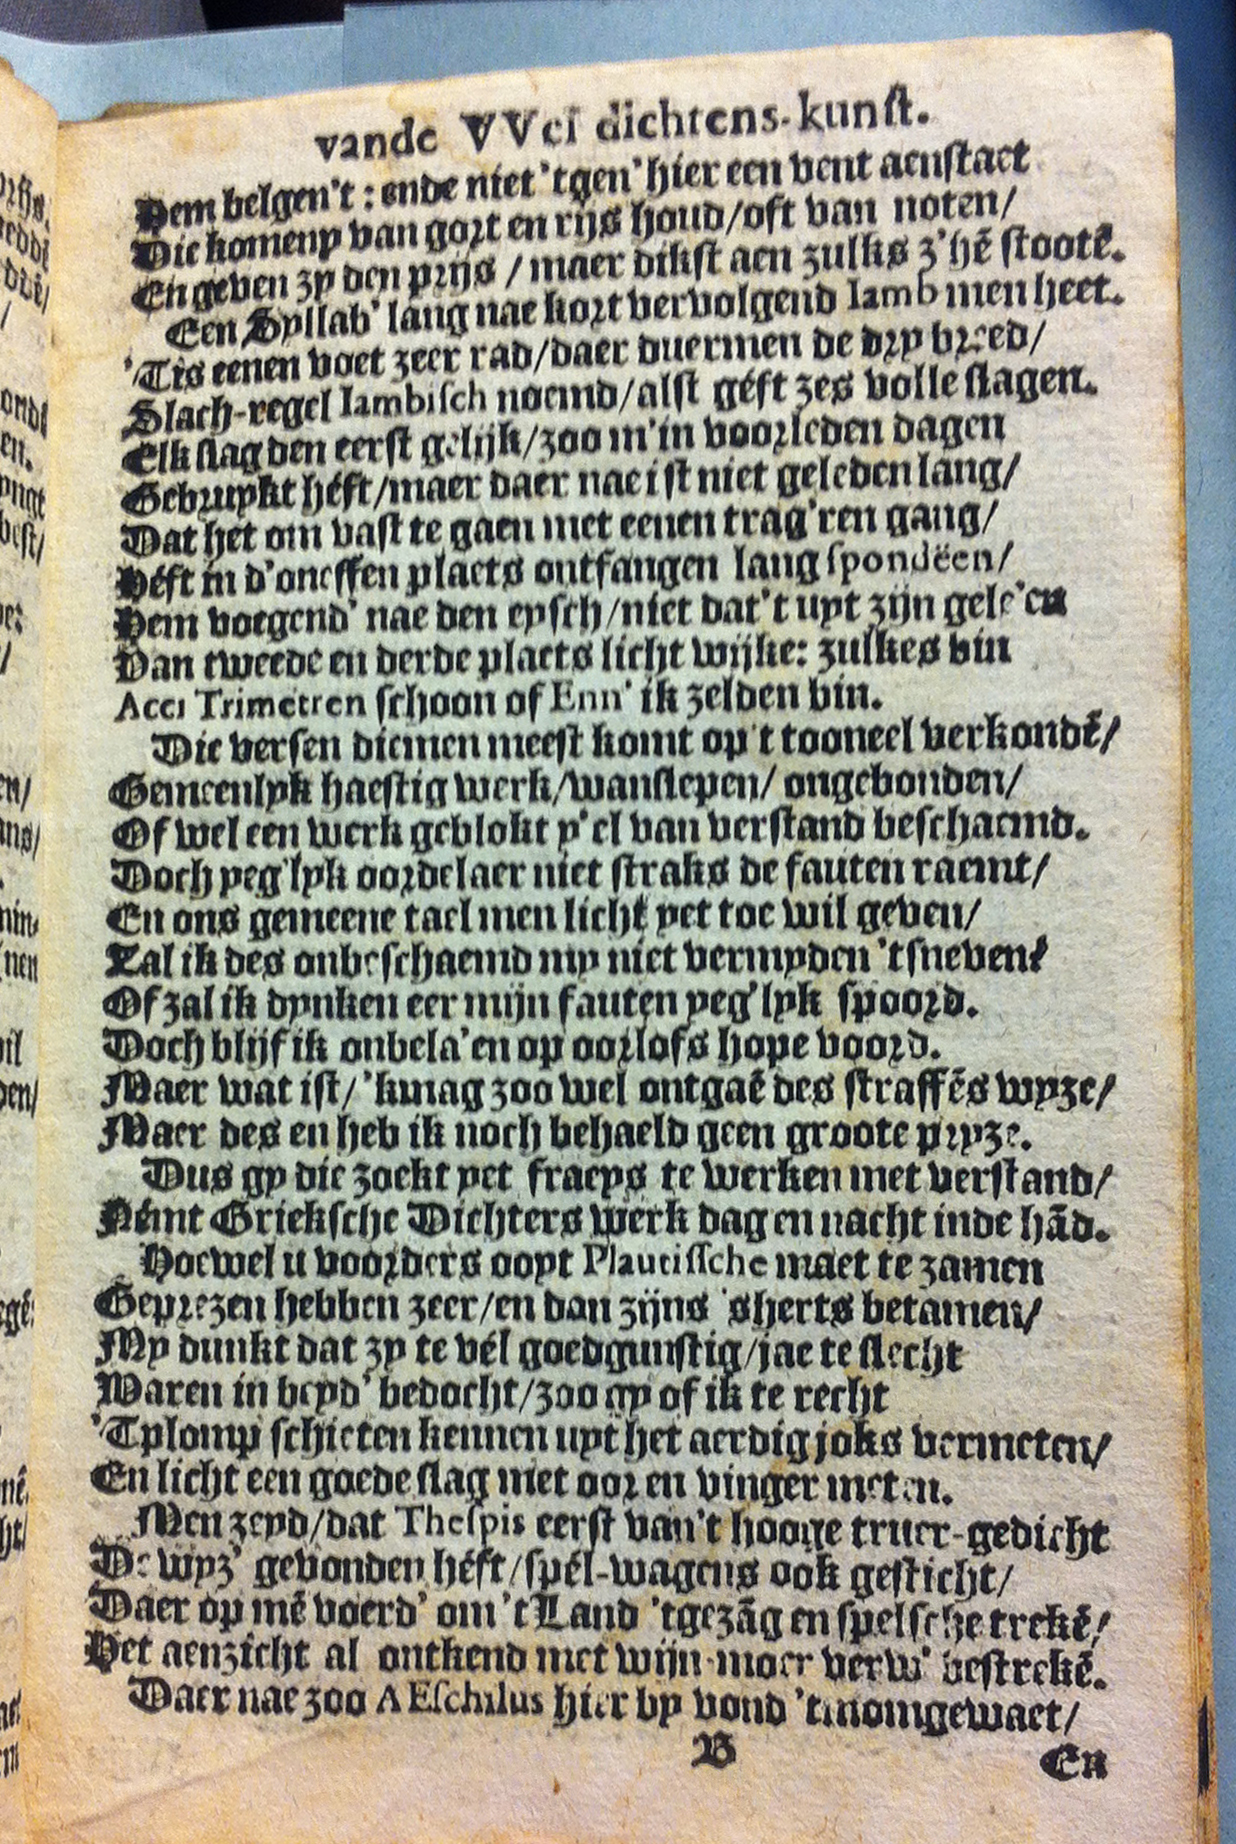 vande VVel dichtens-kunst.
Hem belgen't : ende niet 'tgen' hier een vent aenstaet
Die komeny van gort en rijs houd/oft van noten/
En geven zy den prijs / maer dikst aen zulks z'hē stootē.
Een Syllab' lang nae kort vervolgend Iamb men heet.
'Tis eenen voet zeer rad/daer duermen de dry breed/
Slach-regel Iambisch noemd/alst géft zes volle slagen.
Elk slag den eerst gelijk/zoo m'in voorleden dagen
Gebruykt héft/maer daer nae ist niet geleden lang/
Dat het om vast te gaen met eenen trag'ren gang/
Héft in d'oneffen plaets ontfangen lang spondëen/
Hem voegend' nae den eysch/niet dat't uyt zijn gele'en
Van tweede en derde plaets licht wijke: zulkes vin
Acci Trimetren schoon of Enn' ik zelden bin.
Die versen diemen meest komt op't tooneel verkondē/
Gemeenlyk haestig werk/wanslepen/ ongebonden/
Of wel een werk geblokt y'el van verstand beschaemd.
Doch yeg'lyk oordelaer niet straks de fauten raemt/
En ons gemeene tael men licht yet toe wil geven/
Zal ik des onbeschaemd my niet vermyden 'tsneven?
Of zal ik dynken eer mijn fauten yeg'lyk spoord.
Doch blijf ik onbela'en op oorlofs hope voord.
Maer wat ist/'kmag zoo wel ontgaē des straffēs wyze/
Maer des en heb ik noch behaeld geen groote pryze.
Dus gy die zoekt yet fraeys te werken met verstand/
Némt Grieksche Dichters werk dag en nacht inde hād.
Hoewel u voorders oopt Plautissche maet te zamen
Geprezen hebben zeer/en dan zijns 'sherts betamen/
My dunkt dat zy te vél goedgunstig/jae te slecht
Waren in beyd' bedocht/zoo gy of ik te recht
'Tplomp schieten kennen uyt het aerdig joks vermeten/
En licht een goede slag met oor en vinger meten.
Men zeyd/dat Thespis eerst van't hooge truer-gedicht
De wyz' gevonden héft/spél-wagens ook gesticht/
Daer op mē voerd' om 't Land 'tgezāg en spelsche trekē/
Het aenzicht al ontkend met wijn-moer verw' bestrekē.
Daer nae zoo AEschilus hier by vond 'tmomgewaet/
B
En